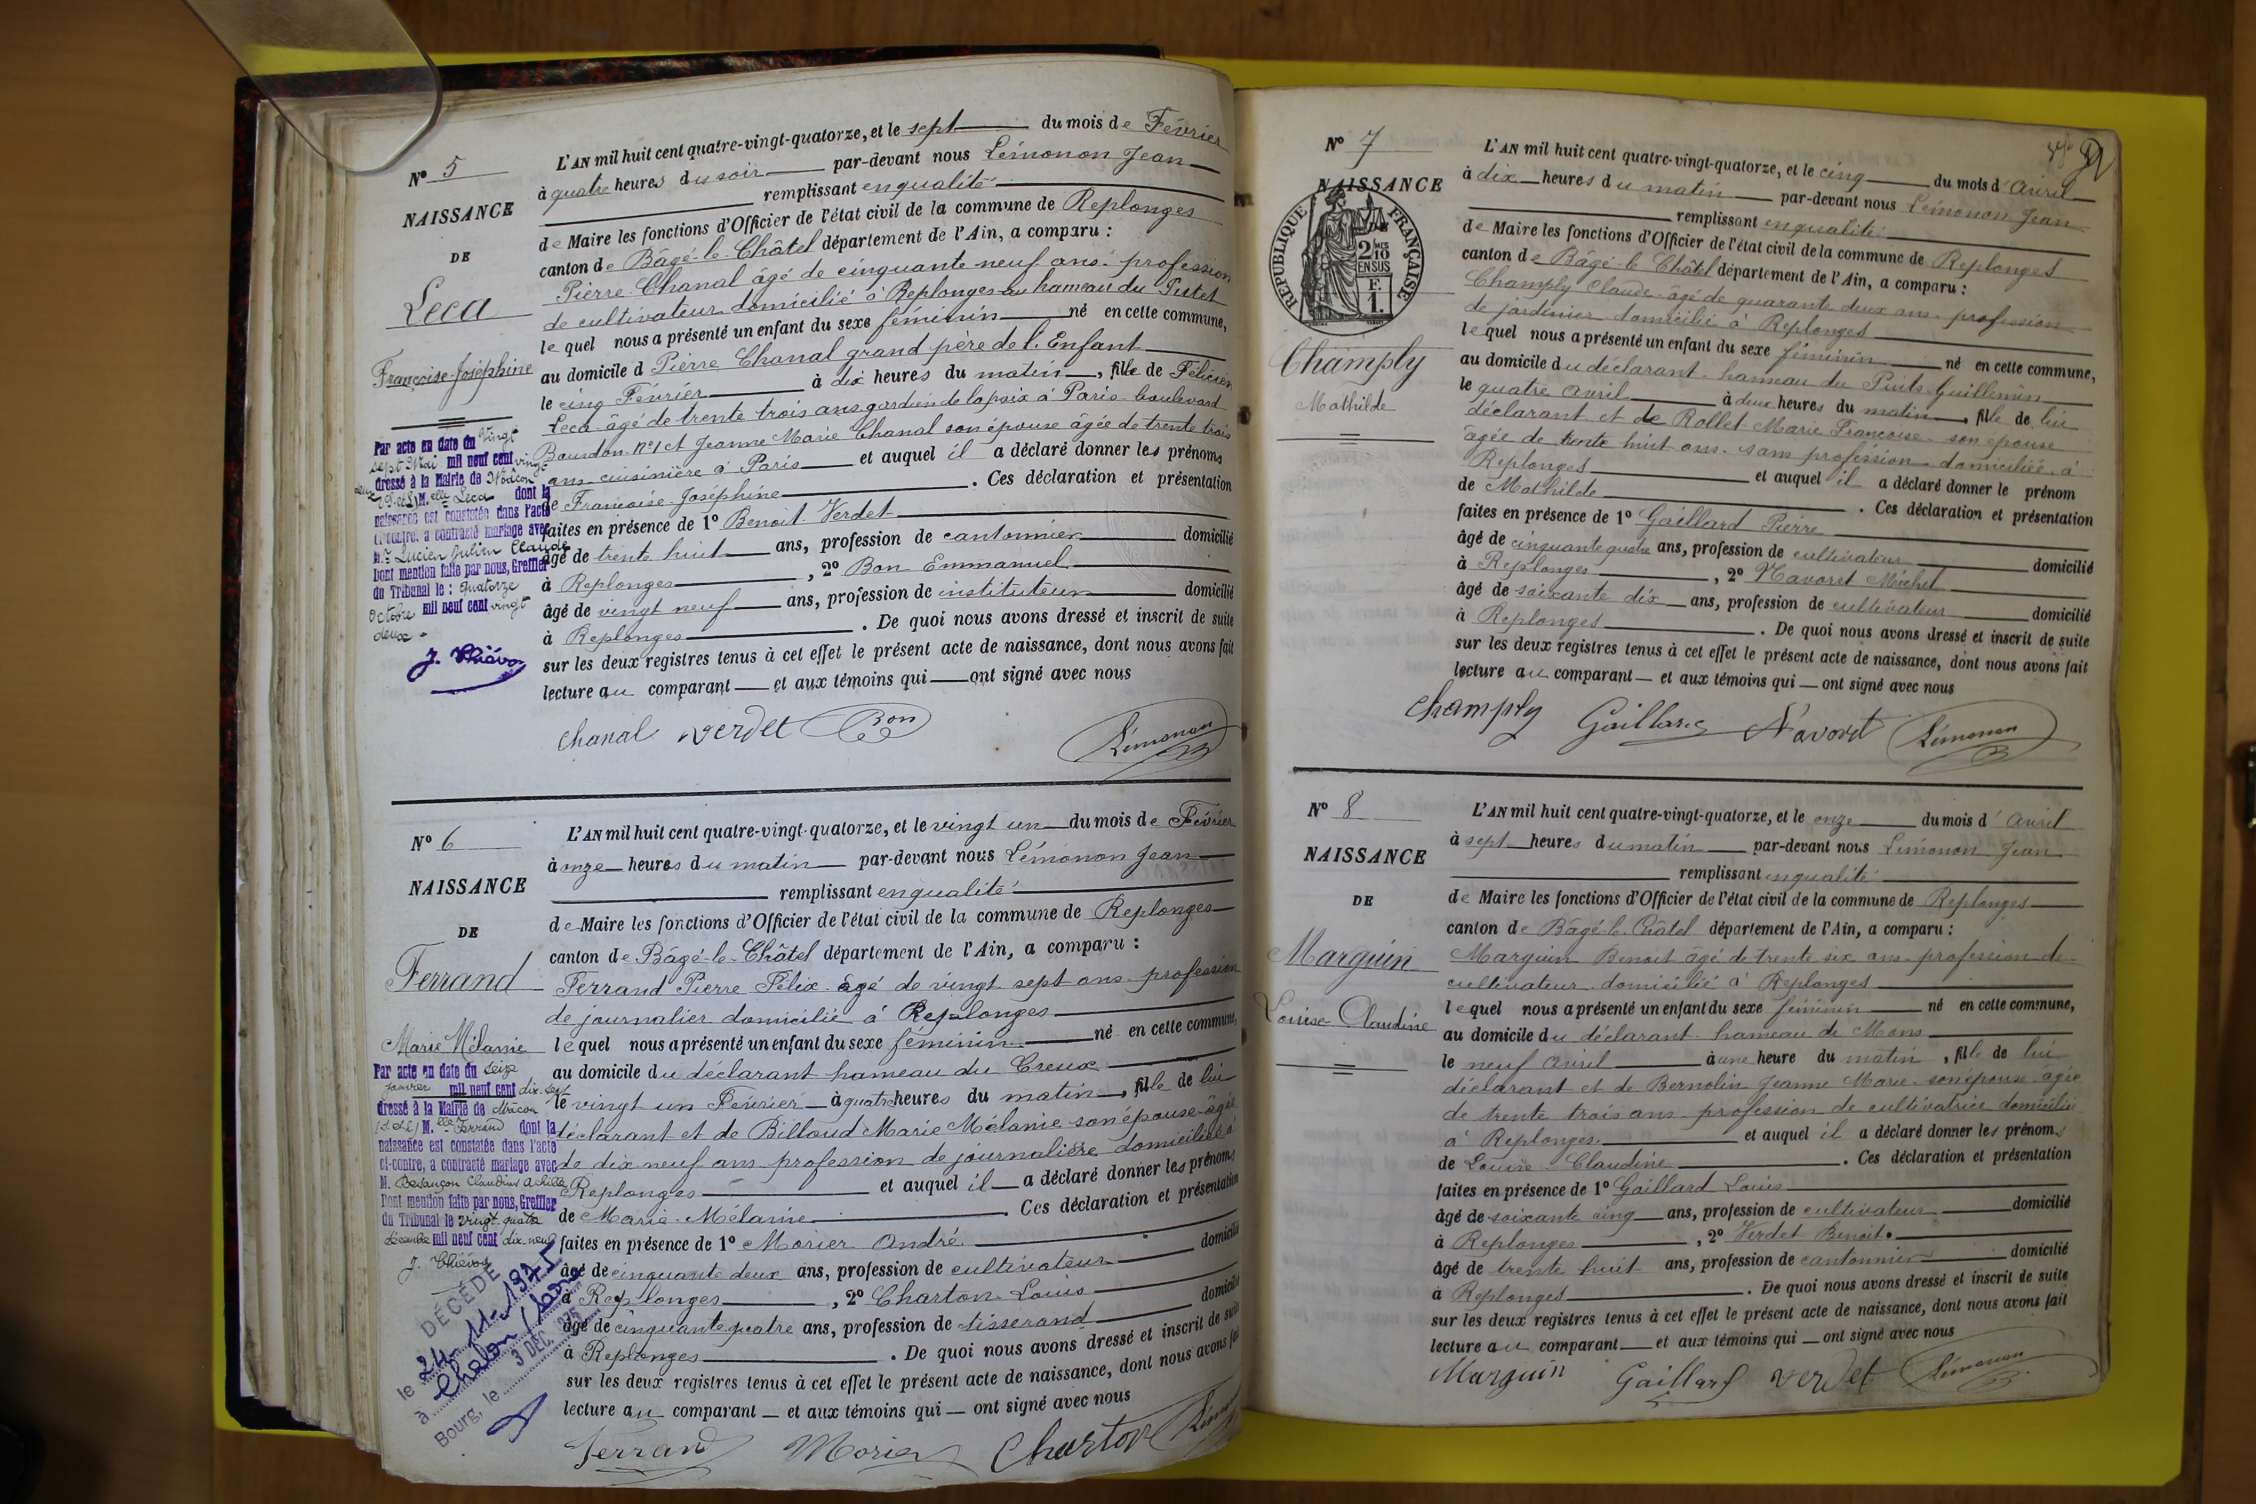 N° 5
NAISSANCE
DE
Leca
Françoise-Joséphine
Par acte en date du vingt
sept Mai mil neuf cent vingt
deux dressé à la Mairie de Mâcon
(S.et L.) M.elle Leca dont la
naissance est constatée dans l'acte
ci-contre, a contracté mariage avec
M.r Lucien Julien Claude
Dont mention faite par nous, Greffier
du Tribunal le : quatorze
Octobre mil neuf cent vingt
deux
L'AN mil huit cent quatre-vingt-quatorze, et le sept du mois de Février
à quatre heures du soir par-devant nous Lémonon Jean
remplissant en qualité
de Maire les fonctions d'Officier de l'état civil de la commune de Replonges
canton de Bâgé-le-Châtel département de l'Ain, a comparu :
Pierre Chanal âgé de cinquante neuf ans profession
de cultivateur domicilié à Replonges au hameau du
lequel nous a présenté un enfant du sexe féminin né en cette commune,
au domicile d Pierre Chanal grand père de l'Enfant
le cinq Février à dix heures du matin, fille de Félicien
Leca âgé de trente trois ans gardien de la paix à Paris boulevard
Bourdon n°1 et Jeanne Marie Chanal son épouse âgée de trente trois
ans cuisinière à Paris et auquel il a déclaré donner les prénoms
de Françoise-Joséphine . Ces déclaration et présentation
faites en présence de 1° Benoit Verdet
âgé de trente huit ans, profession de cantonnier domicilié
à Replonges , 2° Bon Emmanuel
âgé de vingt neuf ans, profession de instituteur domicilié
à Replonges . De quoi nous avons dressé et inscrit de suite
sur les deux registres tenus à cet effet le présent acte de naissance, dont nous avons fait
lecture au comparant et aux témoins qui ont signé avec nous
Chanal Verdet Bon Lémonon
N° 6
NAISSANCE
DE
Ferrand
Marie Mélanie
Par acte en date du seize
janvier mil neuf cent dix-sept
dressé à la Mairie de Mâcon
(S.&L.) M.elle Ferrand dont la
naissance est constatée dans l'acte
ci-contre, a contracté mariage avec
M. Besançon Claudius Achille
Dont mention faite par nous, Greffier
du Tribunal le vingt-quatre
mil neuf cent dix-neuf
DÉCÉDÉ
le 24-11-1975
à Chalon/Saône
Bourg, le 3 DEC. 1975
L'AN mil huit cent quatre-vingt-quatorze, et le vingt un du mois de Février
à onze heures du matin par-devant nous Lémonon Jean
remplissant en qualité
de Maire les fonctions d'Officier de l'état civil de la commune de Replonges
canton de Bâgé-le-Châtel département de l'Ain, a comparu :
Ferrand Pierre Félix âgé de vingt sept ans profession
de journalier domicilié à Replonges
lequel nous a présenté un enfant du sexe féminin né en cette commune,
au domicile du déclarant hameau du Creux
le vingt un Février à quatre heures du matin, fille de lui
déclarant et de Billoud Marie Mélanie son épouse âgée
de dix neuf ans profession de journalière domiciliée à
Replonges et auquel il a déclaré donner les prénoms
de Marie-Mélanie . Ces déclaration et présentation
faites en présence de 1° Morier André
âgé de cinquante deux ans, profession de cultivateur domicilié
à Replonges , 2° Charton Louis
âgé de cinquante quatre ans, profession de tisserand domicilié
à Replonges . De quoi nous avons dressé et inscrit de suite
sur les deux registres tenus à cet effet le présent acte de naissance, dont nous avons fait
lecture au comparant et aux témoins qui ont signé avec nous
Ferrand Morier Charton
N° 7
NAISSANCE
RÉPUBLIQUE FRANÇAISE
2/10 EN SUS
F. 1.
Champly
Mathilde
L'AN mil huit cent quatre-vingt-quatorze, et le cinq du mois d'avril
à dix heures du matin par-devant nous Lémonon Jean
remplissant en qualité
de Maire les fonctions d'Officier de l'état civil de la commune de Replonges
canton de Bâgé-le-Châtel département de l'Ain, a comparu :
Champly Claude âgé de quarante deux ans profession
de jardinier domicilié à Replonges
lequel nous a présenté un enfant du sexe féminin né en cette commune,
au domicile du déclarant hameau du Puits-Guillemin
le quatre avril à deux heures du matin, fille de lui
déclarant et de Rollet Marie Françoise son épouse
âgée de trente huit ans sans profession domiciliée à
Replonges et auquel il a déclaré donner le prénom
de Mathilde . Ces déclaration et présentation
faites en présence de 1° Gaillard Pierre
âgé de cinquante quatre ans, profession de cultivateur domicilié
à Replonges , 2° Navoret Michel
âgé de soixante dix ans, profession de cultivateur domicilié
à Replonges . De quoi nous avons dressé et inscrit de suite
sur les deux registres tenus à cet effet le présent acte de naissance, dont nous avons fait
lecture au comparant et aux témoins qui ont signé avec nous
Champly Gaillard Navoret Lémonon
N° 8
NAISSANCE
DE
Marguin
Louise-Claudine
L'AN mil huit cent quatre-vingt-quatorze, et le onze du mois d'avril
à sept heures du matin par-devant nous Lémonon Jean
remplissant en qualité
de Maire les fonctions d'Officier de l'état civil de la commune de Replonges
canton de Bâgé-le-Châtel département de l'Ain, a comparu :
Marguin Benoit âgé de trente six ans profession de
cultivateur domicilié à Replonges
lequel nous a présenté un enfant du sexe féminin né en cette commune,
au domicile du déclarant hameau de Mons
le neuf avril à une heure du matin, fille de lui
déclarant et de Bernolin Jeanne Marie son épouse âgée
de trente trois ans profession de cultivatrice domiciliée
à Replonges et auquel il a déclaré donner les prénoms
de Louise Claudine . Ces déclaration et présentation
faites en présence de 1° Gaillard Louis
âgé de soixante cinq ans, profession de cultivateur domicilié
à Replonges , 2° Verdet Benoit
âgé de trente huit ans, profession de cantonnier domicilié
à Replonges . De quoi nous avons dressé et inscrit de suite
sur les deux registres tenus à cet effet le présent acte de naissance, dont nous avons fait
lecture au comparant et aux témoins qui ont signé avec nous
Marguin Gaillard Verdet Lémonon